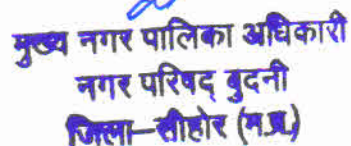 मुख्य नगर पालिका अधिकारी
नगर परिषद् बुदनी
जिला–सीहोर (म.प्र.)